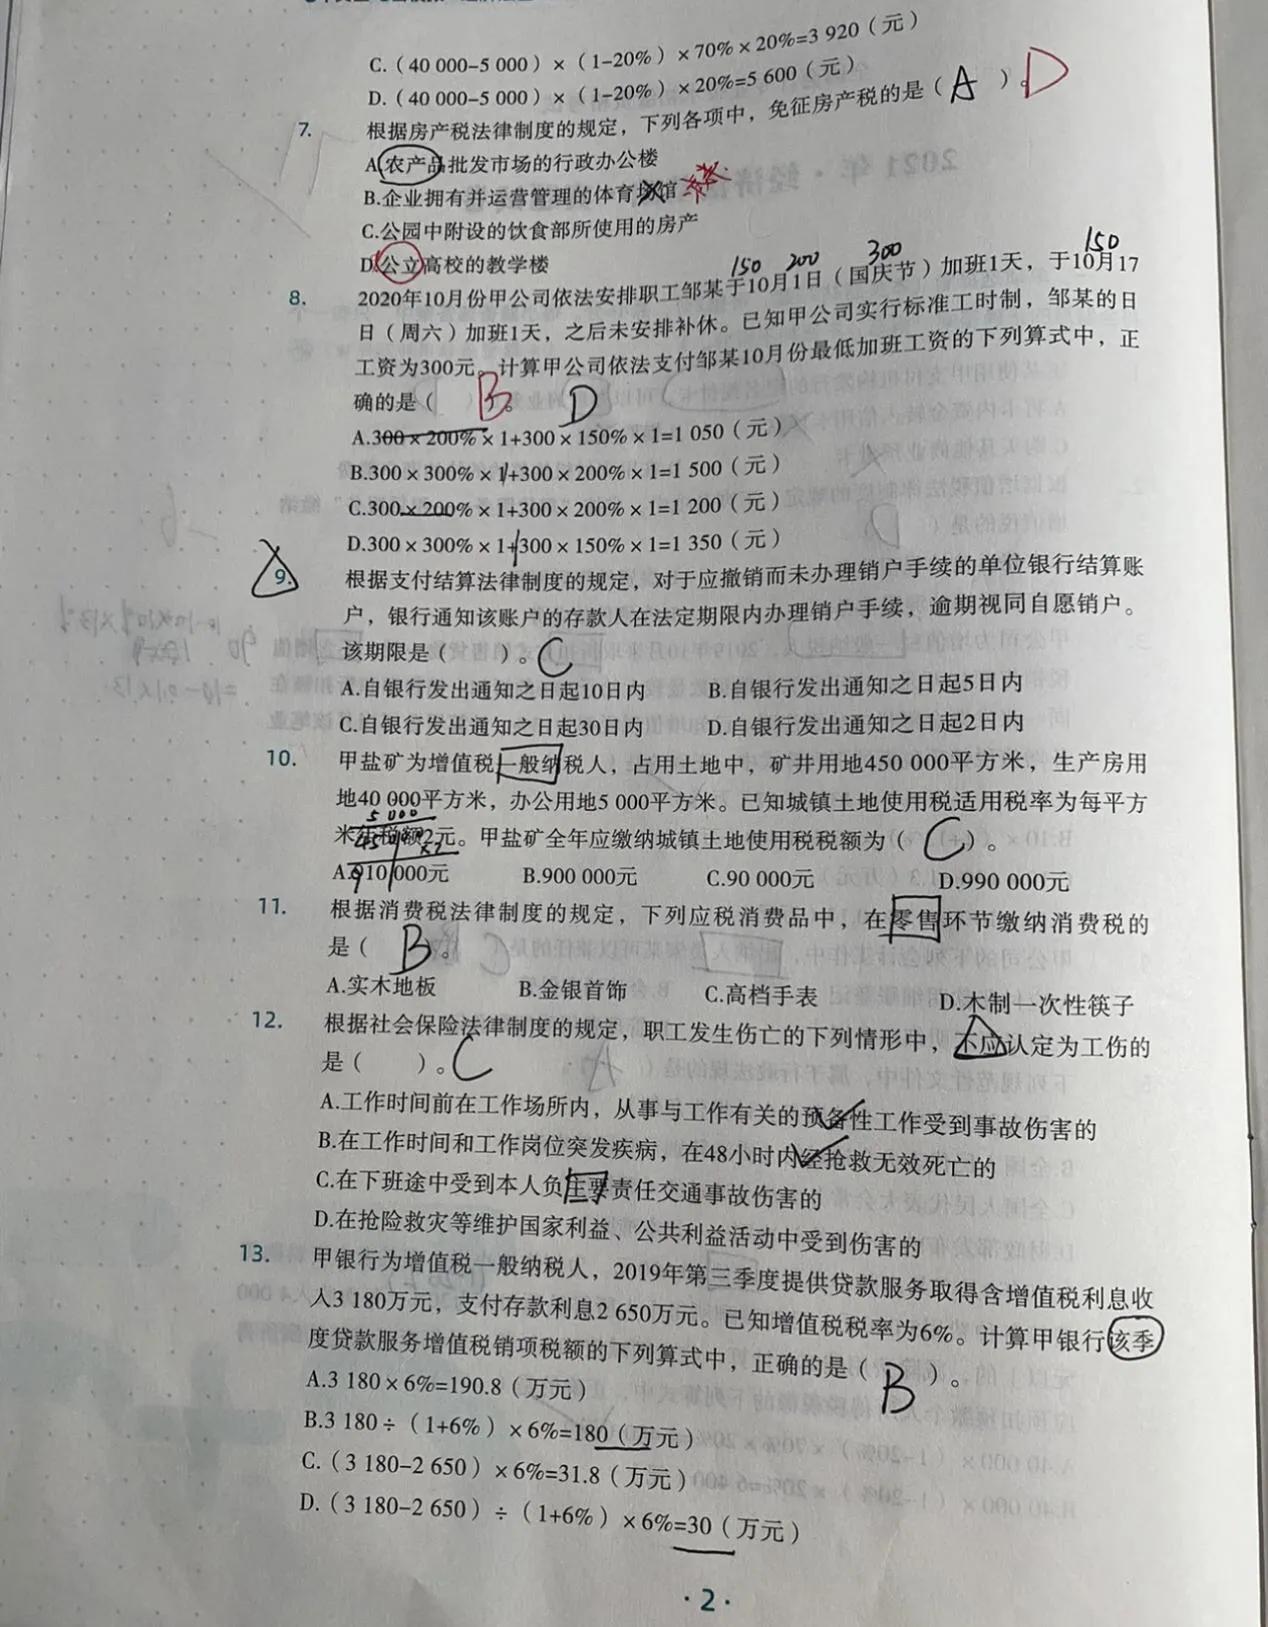 C.（40 000-5 000）×（1-20%）×70%×20%=3 920（元）
D.（40 000-5 000）×（1-20%）×20%=5 600（元）
7. 根据房产税法律制度的规定，下列各项中，免征房产税的是（ A ）。D
A.农产品批发市场的行政办公楼
B.企业拥有并运营管理的体育场馆
C.公园中附设的饮食部所使用的房产
D.公立高校的教学楼
150 200 300 150
8. 2020年10月份甲公司依法安排职工邹某于10月1日（国庆节）加班1天，于10月17
日（周六）加班1天，之后未安排补休。已知甲公司实行标准工时制，邹某的日
工资为300元。计算甲公司依法支付邹某10月份最低加班工资的下列算式中，正
确的是（ B ）。 D
A.300×200%×1+300×150%×1=1 050（元）
B.300×300%×1+300×200%×1=1 500（元）
C.300×200%×1+300×200%×1=1 200（元）
D.300×300%×1+300×150%×1=1 350（元）
9. 根据支付结算法律制度的规定，对于应撤销而未办理销户手续的单位银行结算账
户，银行通知该账户的存款人在法定期限内办理销户手续，逾期视同自愿销户。
该期限是（ ）。C
A.自银行发出通知之日起10日内 B.自银行发出通知之日起5日内
C.自银行发出通知之日起30日内 D.自银行发出通知之日起2日内
10. 甲盐矿为增值税一般纳税人，占用土地中，矿井用地450 000平方米，生产房用
地40 000平方米，办公用地5 000平方米。已知城镇土地使用税适用税率为每平方
米年税额2元。甲盐矿全年应缴纳城镇土地使用税税额为（ C ）。
A.910 000元 B.900 000元 C.90 000元 D.990 000元
11. 根据消费税法律制度的规定，下列应税消费品中，在零售环节缴纳消费税的
是（ B ）。
A.实木地板 B.金银首饰 C.高档手表 D.木制一次性筷子
12. 根据社会保险法律制度的规定，职工发生伤亡的下列情形中，不应认定为工伤的
是（ ）。C
A.工作时间前在工作场所内，从事与工作有关的预备性工作受到事故伤害的
B.在工作时间和工作岗位突发疾病，在48小时内经抢救无效死亡的
C.在下班途中受到本人负主要责任交通事故伤害的
D.在抢险救灾等维护国家利益、公共利益活动中受到伤害的
13. 甲银行为增值税一般纳税人，2019年第三季度提供贷款服务取得含增值税利息收
入3 180万元，支付存款利息2 650万元。已知增值税税率为6%。计算甲银行该季
度贷款服务增值税销项税额的下列算式中，正确的是（ B ）。
A.3 180×6%=190.8（万元）
B.3 180÷（1+6%）×6%=180（万元）
C.（3 180-2 650）×6%=31.8（万元）
D.（3 180-2 650）÷（1+6%）×6%=30（万元）
·2·